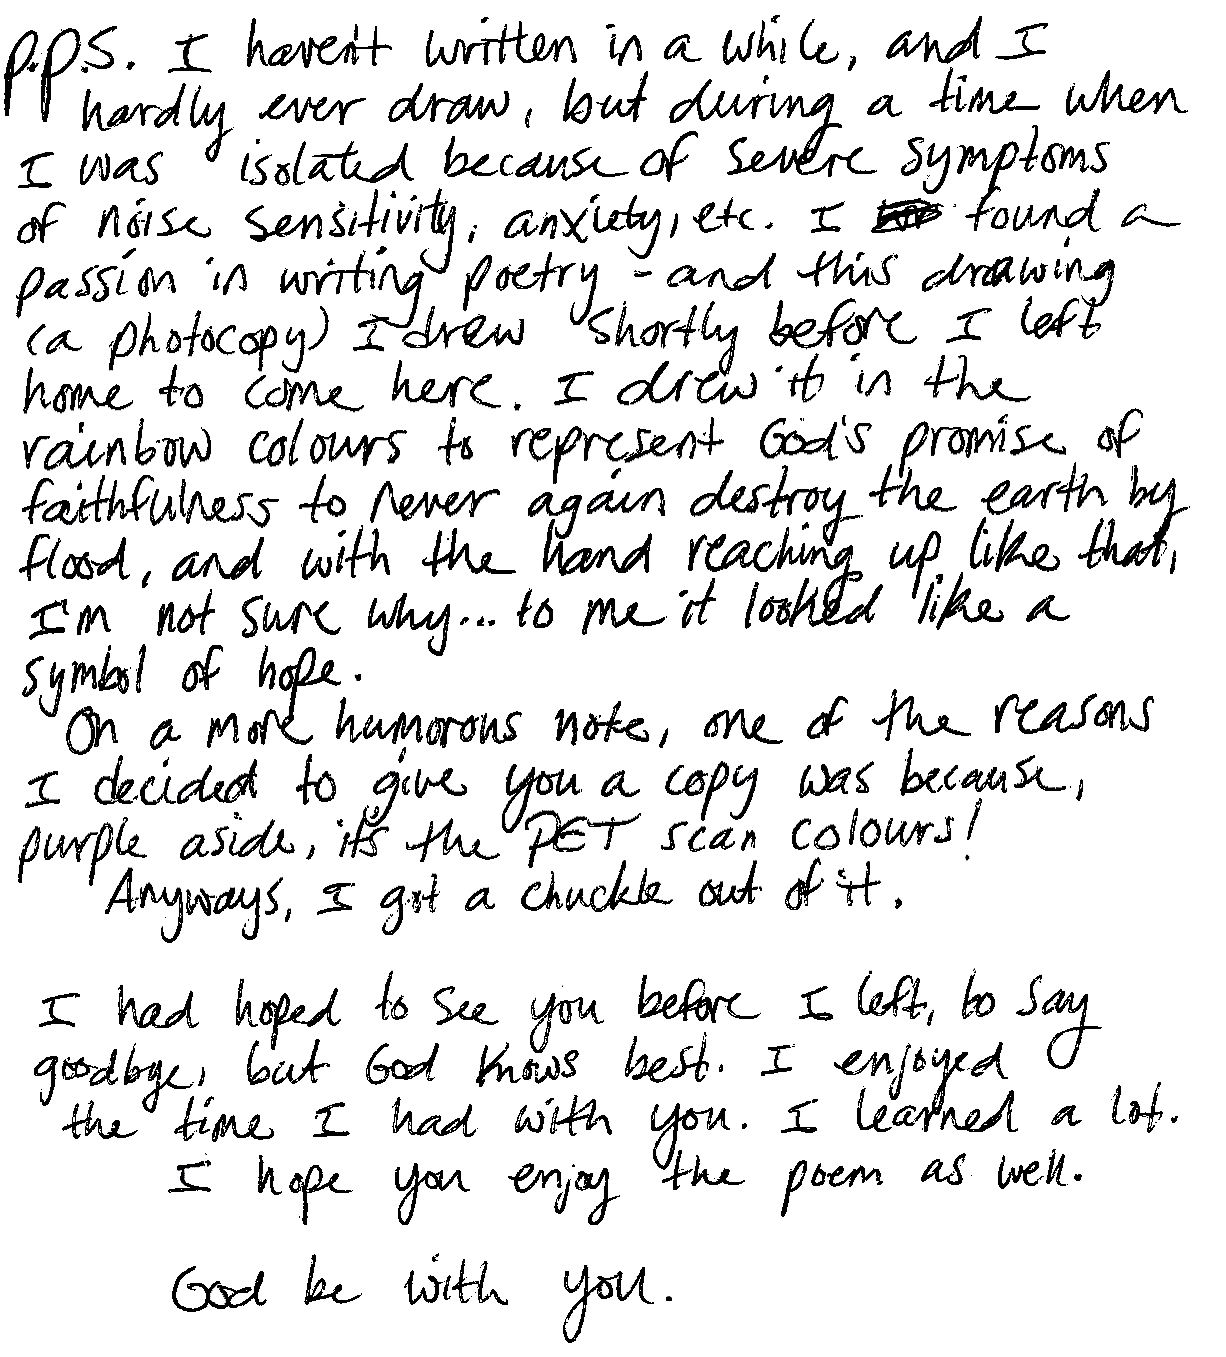 P.P.S. I haven't written in a while, and I
hardly ever draw, but during a time when
I was isolated because of severe symptoms
of noise sensitivity, anxiety, etc. I found a
passion in writing poetry - and this drawing
(a photocopy) I drew shortly before I left
home to come here. I drew it in the
rainbow colours to represent God's promise of
faithfulness to never again destroy the earth by
flood, and with the hand reaching up like that,
I'm not sure why... to me it looked like a
symbol of hope.
On a more humorous note, one of the reasons
I decided to give you a copy was because,
purple aside, it's the PET scan colours!
Anyways, I got a chuckle out of it.
I had hoped to see you before I left, to say
goodbye, but God knows best. I enjoyed
the time I had with you. I learned a lot.
I hope you enjoy the poem as well.
God be with you.